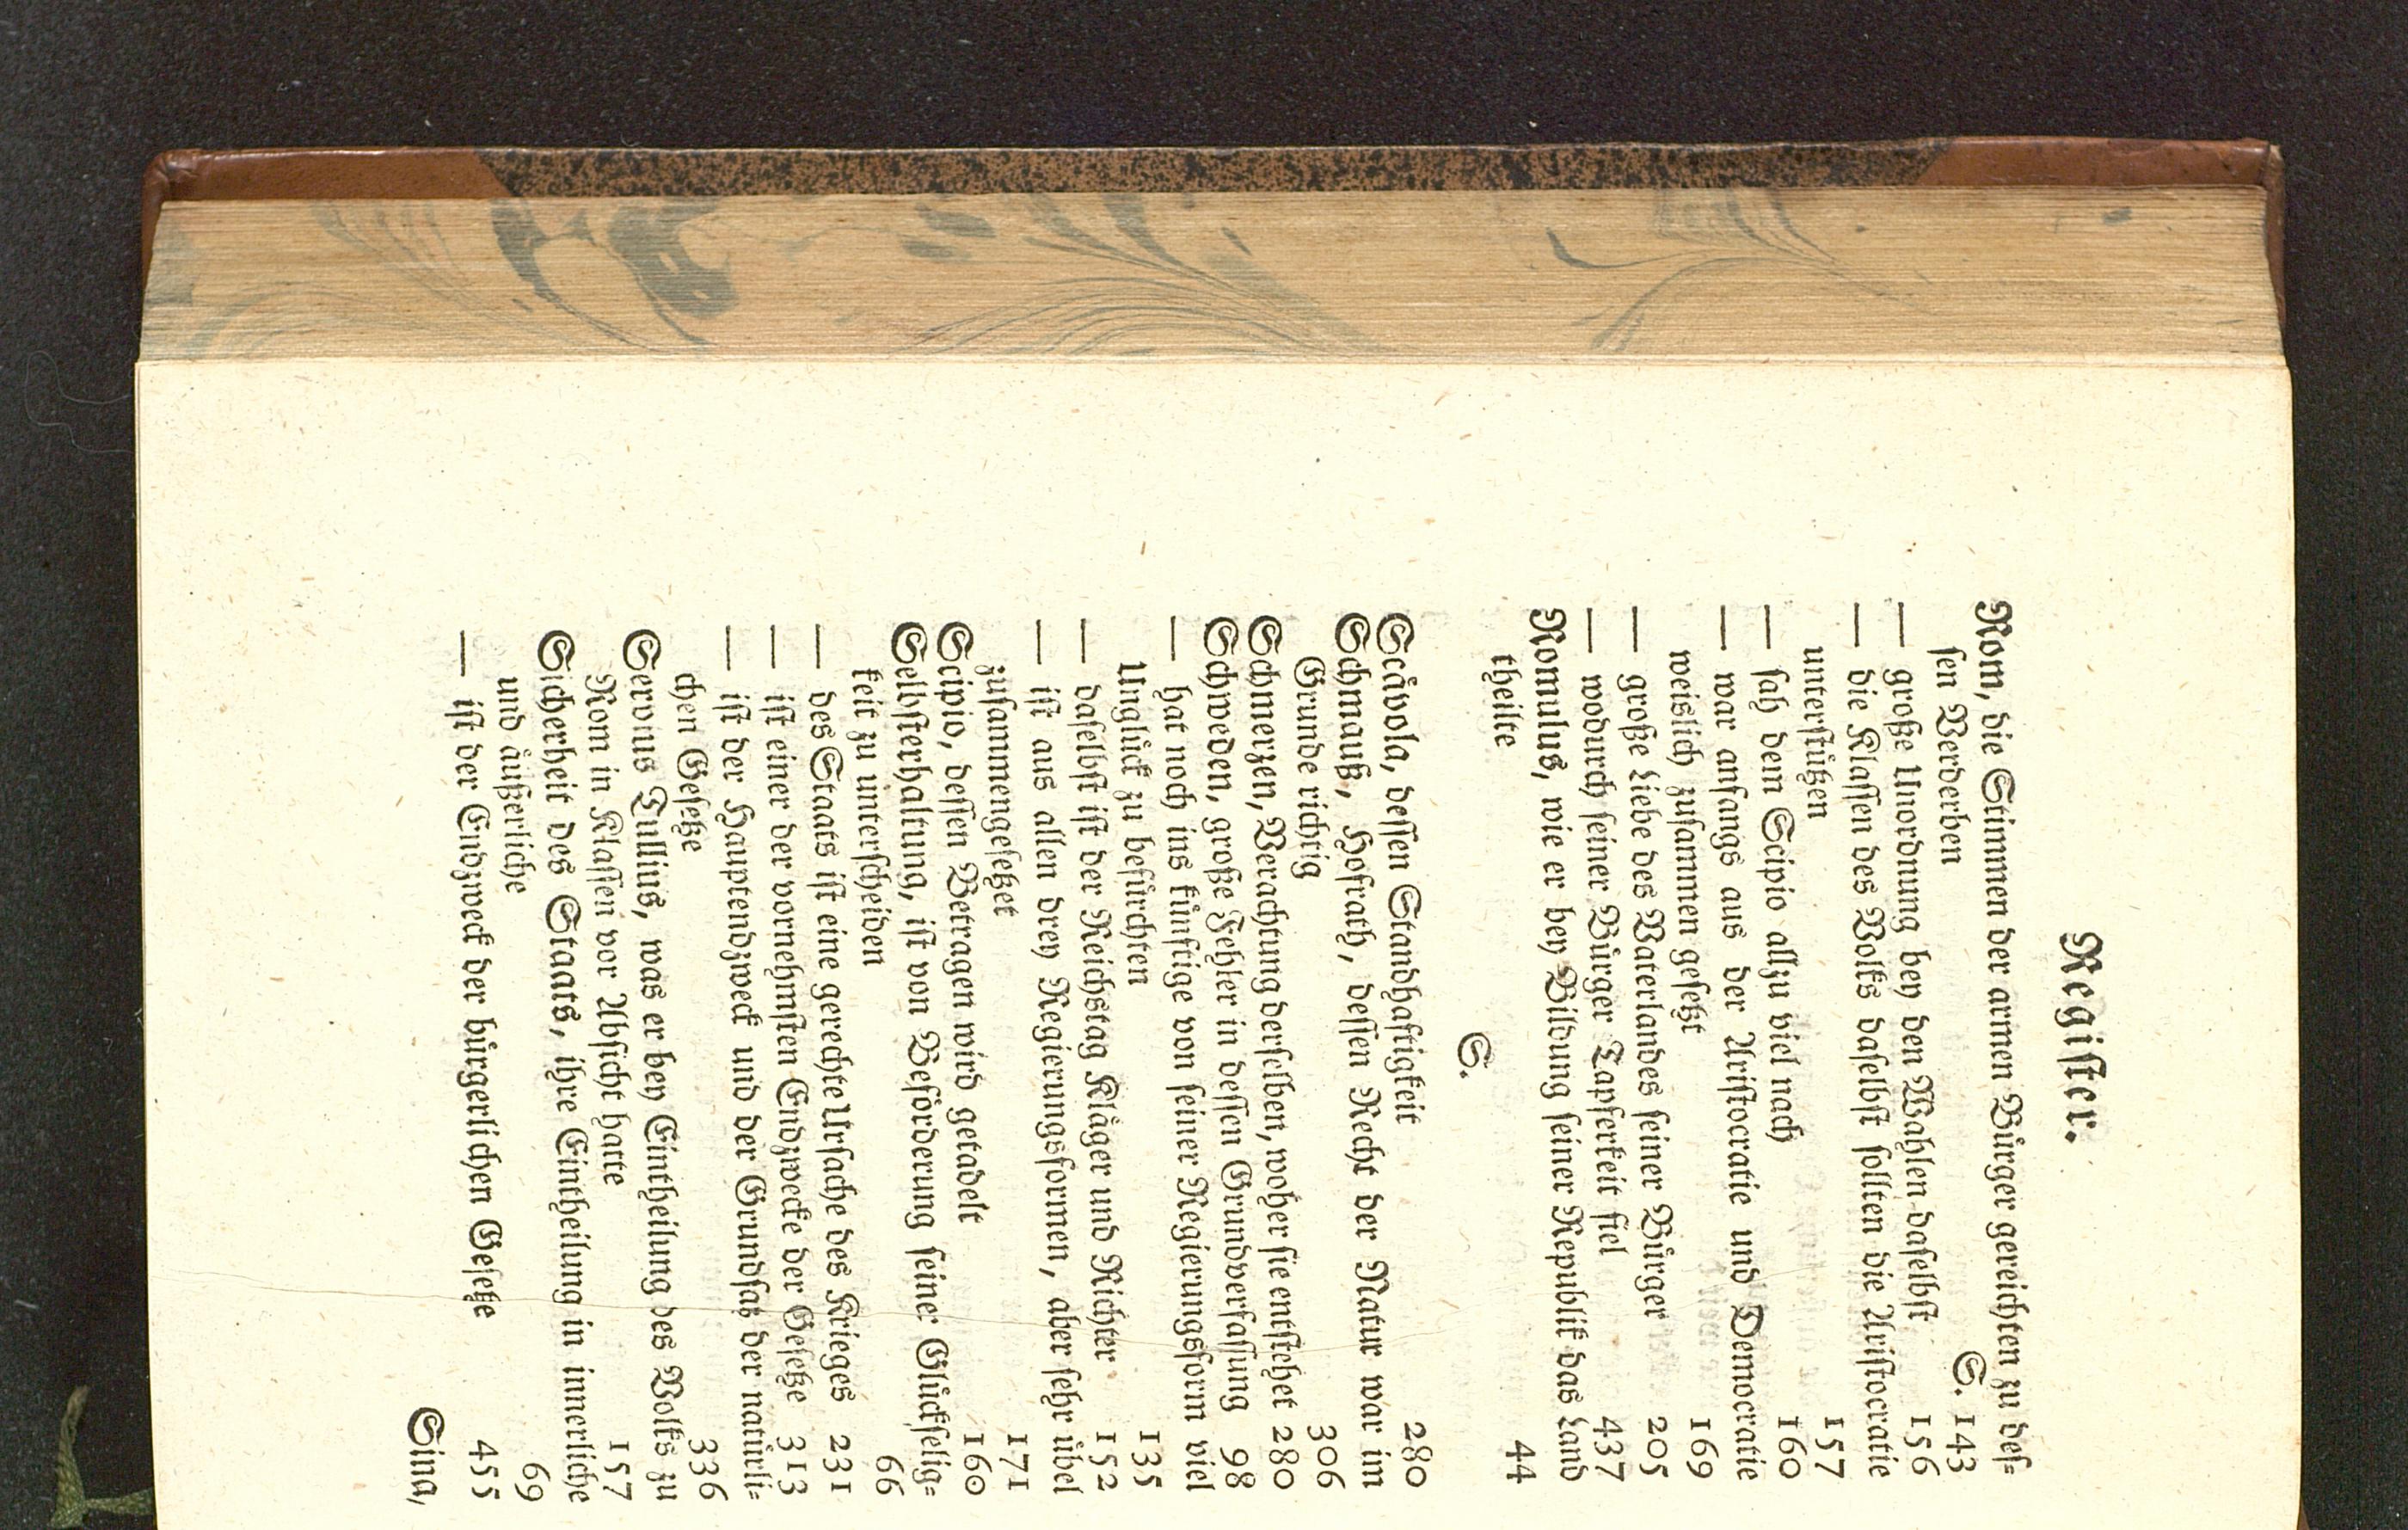 Regiſter.
Rom, die Stimmen der armen Bürger gereichten zu deſ⸗
ſen Verderben S. 143
— große Unordnung bey den Wahlen daſelbſt 156
— die Klaſſen des Volks daſelbſt ſollten die Ariſtocratie
unterſtützen 157
— ſah dem Scipio allzu viel nach 160
— war anfangs aus der Ariſtocratie und Democratie
weislich zuſammen geſetzt 169
— große Liebe des Vaterlandes ſeiner Bürger 205
— wodurch ſeiner Bürger Tapferkeit fiel 437
Romulus, wie er bey Bildung ſeiner Republik das Land
theilte 44
S.
Scävola, deſſen Standhaftigkeit 280
Schmauß, Hofrath, deſſen Recht der Natur war im
Grunde richtig 306
Schmerzen, Verachtung derſelben, woher ſie entſtehet 280
Schweden, große Fehler in deſſen Grundverfaſſung 98
— hat noch ins künftige von ſeiner Regierungsform viel
Unglück zu befürchten 135
— daſelbſt iſt der Reichstag Kläger und Richter 152
— iſt aus allen drey Regierungsformen, aber ſehr übel
zuſammengeſetzet 171
Scipio, deſſen Betragen wird getadelt 160
Selbſterhaltung, iſt von Beförderung ſeiner Glückſelig⸗
keit zu unterſcheiden 66
— des Staats iſt eine gerechte Urſache des Krieges 231
— iſt einer der vornehmſten Endzwecke der Geſetze 313
— iſt der Hauptendzweck und der Grundſatz der natürli⸗
chen Geſetze 336
Servius Tullius, was er bey Eintheilung des Volks zu
Rom in Klaſſen vor Abſicht hatte 157
Sicherheit des Staats, ihre Eintheilung in innerliche
und äußerliche 69
— iſt der Endzweck der bürgerlichen Geſetze 455
Sina,